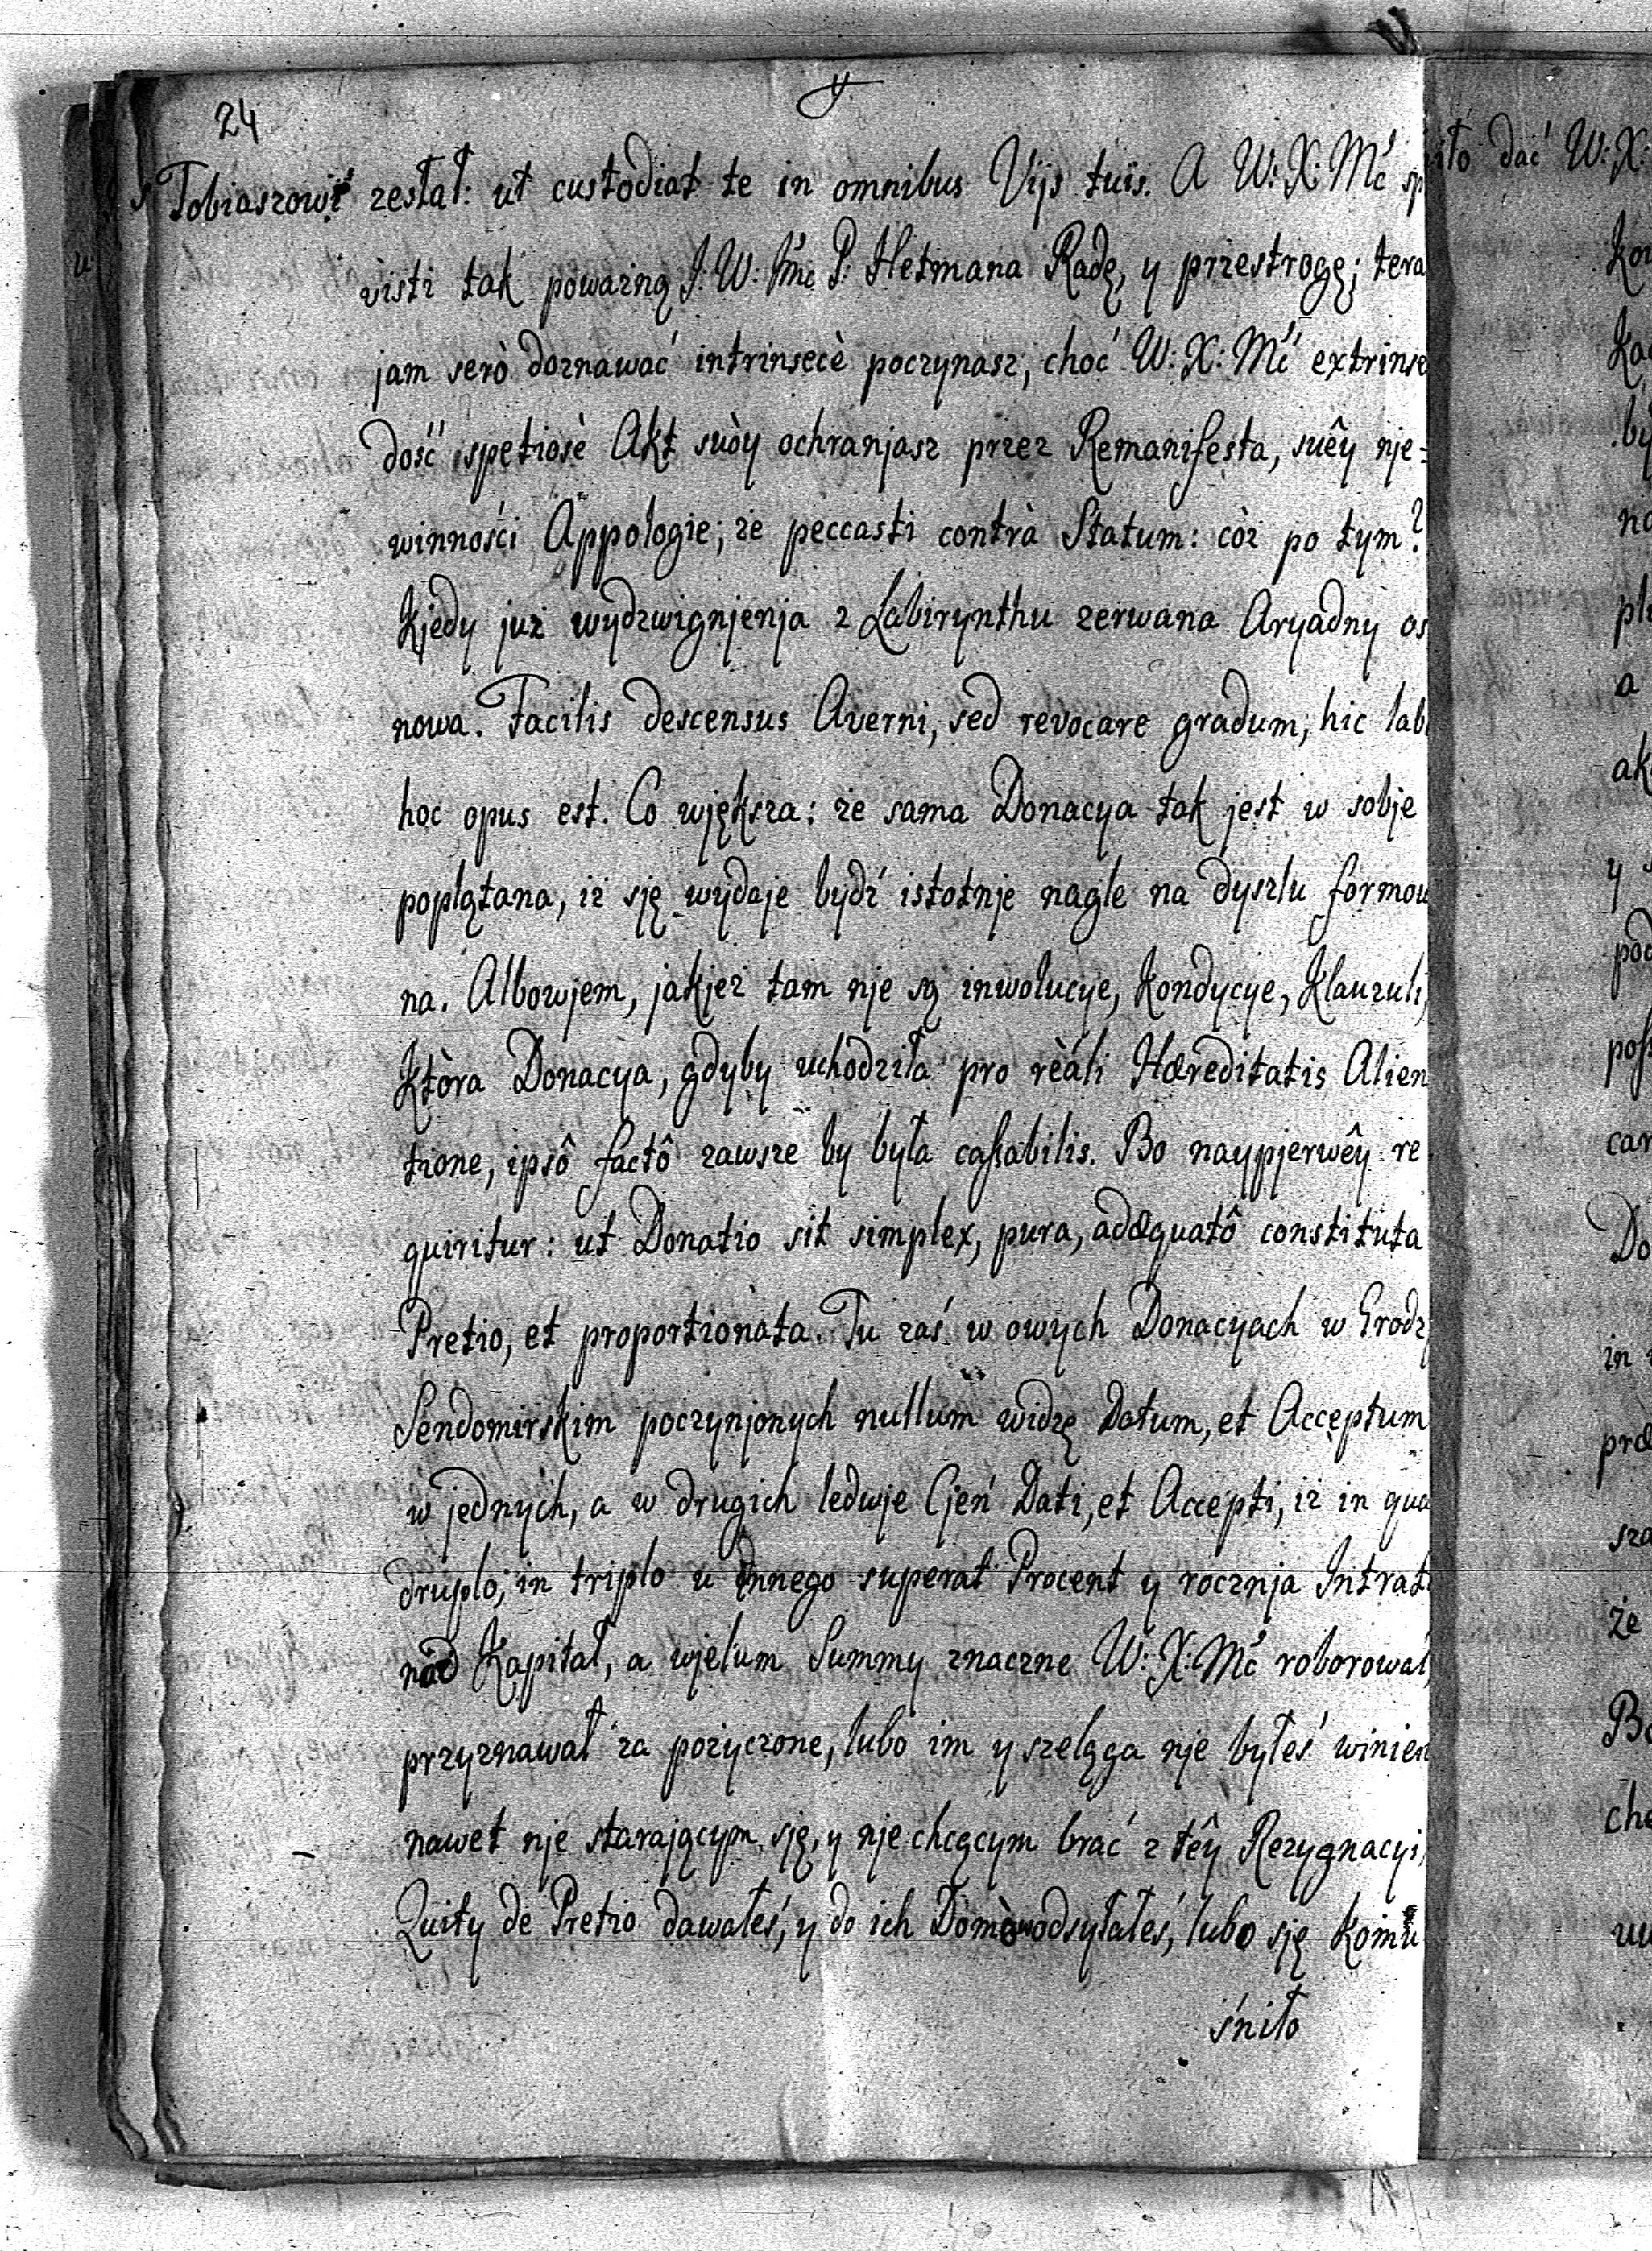 24
y
Tobiaszowi zesłał: ut custodiat te in omnibus Vijs tuis. A W: X: Mć sp
visti tak poważną J: W: Jmć P: Hetmana Radę, y przestrogę; tera
jam serò doznawać intrinsecè poczynasz, choć W: X: Mć extrinse
dość spetiosè Akt swòy ochranjasz przez Remanifesta, swêy nje=
winności Appologie; że peccasti contrà Statum: còż po tym?
Kjedy już wydzwignjenja z Labirynthu zerwana Aryadny os
nowa. Facilis descensus Averni, sed revocare gradum, hic lab
hoc opus est. Co większa: że sama Donacya tak jest w sobje
poplątana, iż sję wydaje bydź istotnje nagle na dyszlu formow
na. Albowjem, jakjeż tam nje są inwolucye, Kondycye, Klauzuli,
Ktòra Donacya, gdyby uchodziła pro rèáli Hæreditatis Alien
tione, ipsô factô zawsze by była cassabilis. Bo naypjerwêy re
quiritur: ut Donatio sit simplex, pura, adæquatô constituta
Pretio, et proportionata. Tu zaś w owych Donacyach w Grodz
Sendomirskim poczynjonych nullum widzę Datum, et Acceptum
w jednych, a w drugich ledwje Cjeń Dati, et Accepti, iż in qua
druplo, in triplo u Innego superat Procent y rocznja Intrat
nad Kapitał, a wjelum Summy znaczne W: X: Mć roborował,
przyznawał za pożyczone, lubo im y szeląga nje byłeś winien
nawet nje starającym sję, y nje chcącym brać z têy Rezygnacyi,
Quity de Pretio dawałeś, y do ich Domòw odsyłałeś, lubo sję Komu
śniło
iło dać W: X:
Ko
Ka
by
na
pl
a
ak
y
pod
poss
car
Do
in
præ
sza
że
B
che